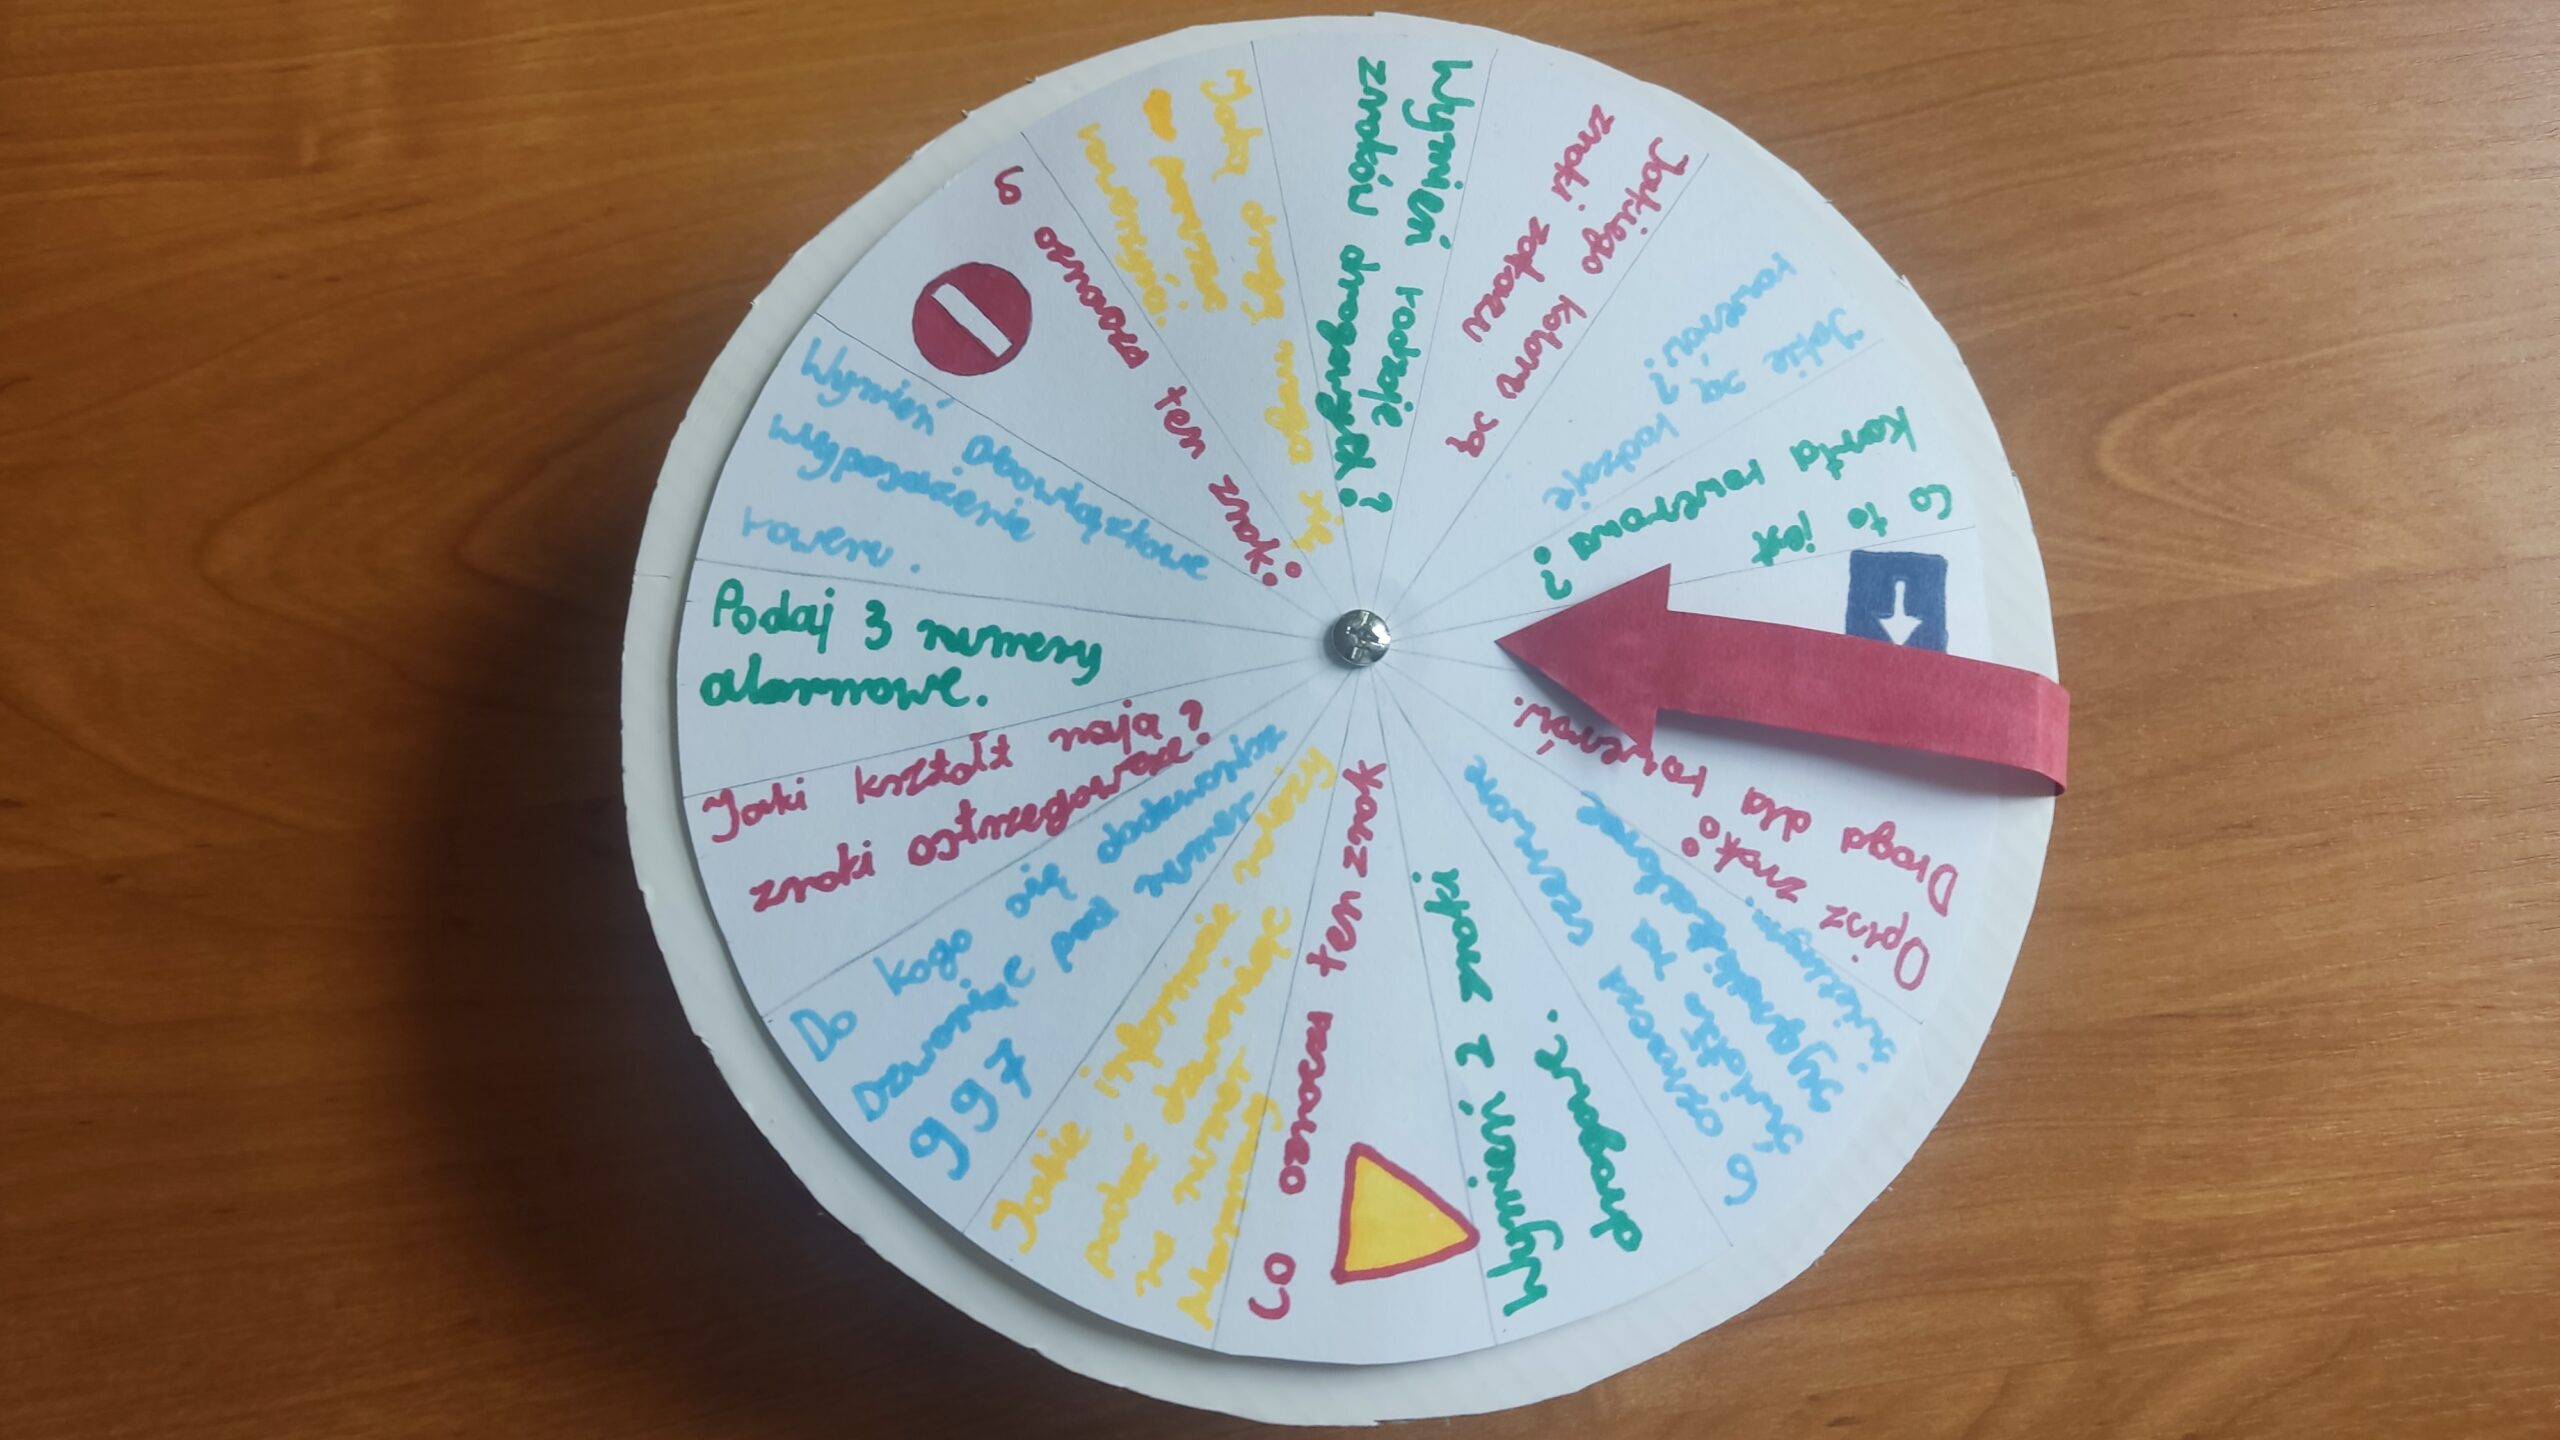 Podaj 3 numery
alarmowe.
Wymień obowiązkowe
wyposażenie
roweru.
Co oznacza ten znak?
Jaką drogą mogą się
poruszać
rowerzyści?
Wymień rodzaje
znaków drogowych?
Jakiego koloru są
znaki zakazu
Jakie są rodzaje
rowerów?
Co to jest
karta rowerowa?
Opisz znak:
Droga dla rowerów.
Co oznacza czerwone
światło na
sygnalizatorze
świetlnym.
Wymień 2 znaki
drogowe.
Co oznacza ten znak
Jakie informacje należy
podać dzwoniąc
na numer
alarmowy
Do kogo się dodzwonisz
Dzwoniąc pod numer
997
Jaki kształt mają
znaki ostrzegawcze?